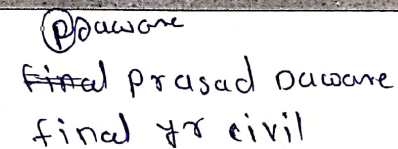 Pdaware
final prasad Daware
final yr civil